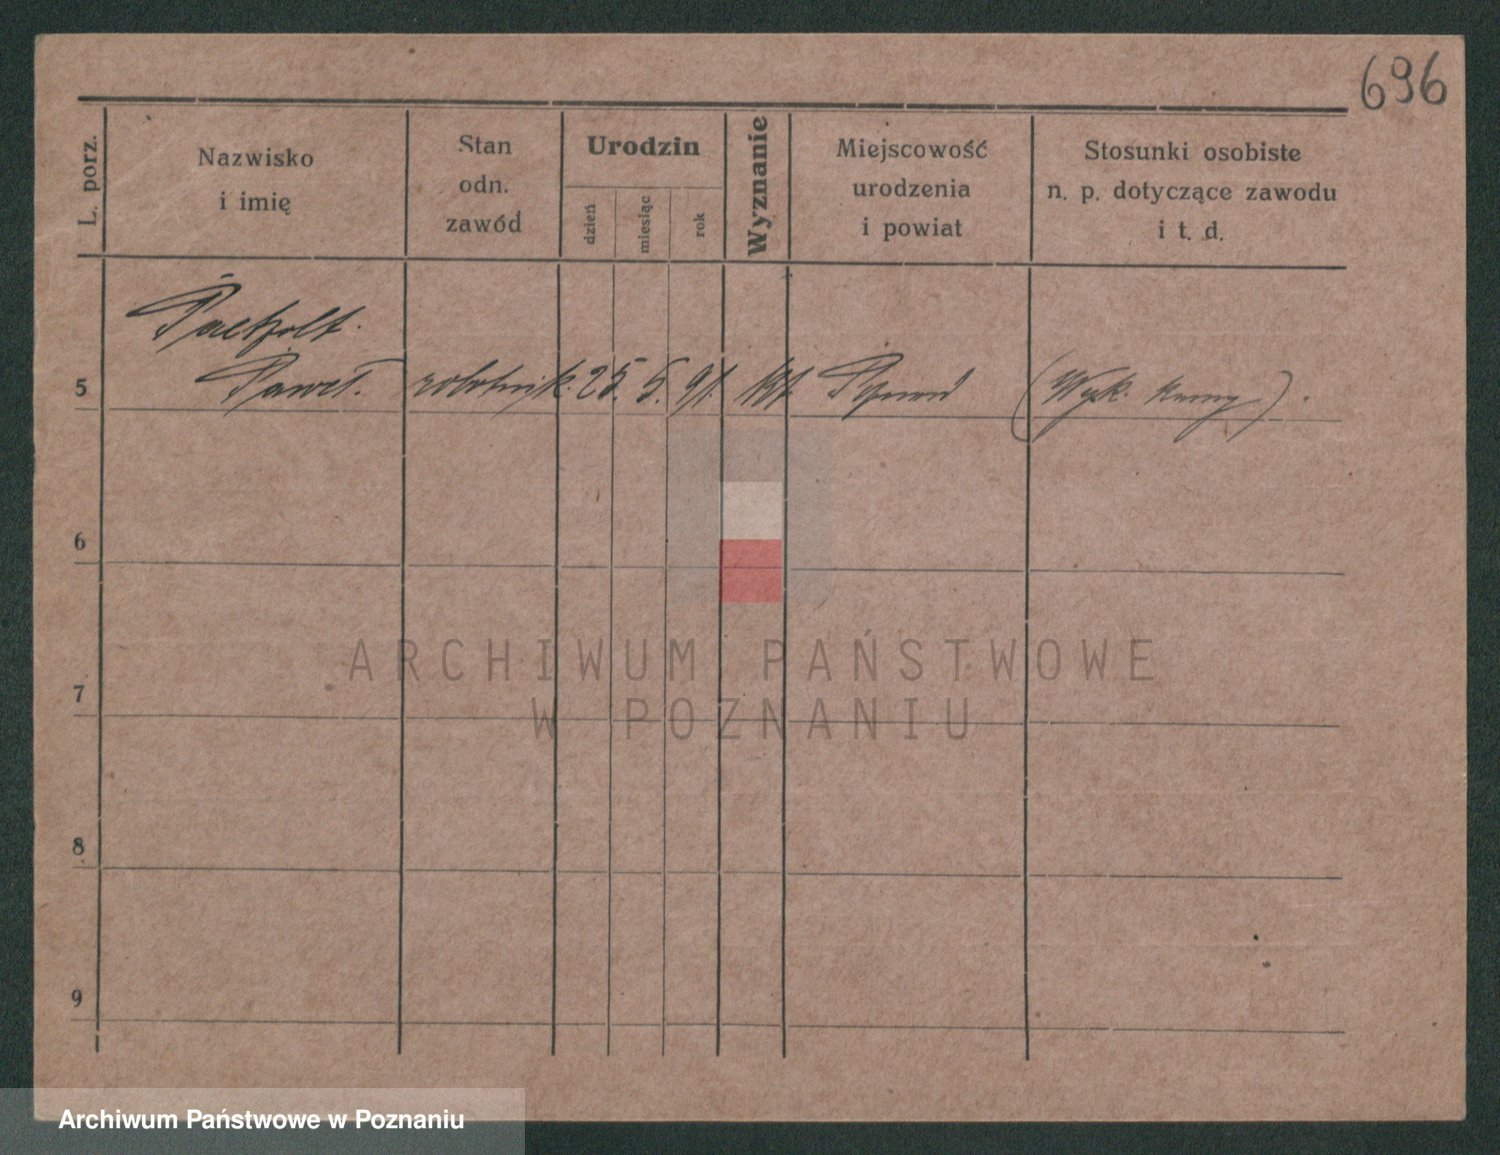 696
L. porz.
Nazwisko
i imię
Stan
odn.
zawód
Urodzin
dzień
miesiąc
rok
Wyznanie
Miejscowość
urodzenia
i powiat
Stosunki osobiste
n. p. dotyczące zawodu
i t. d.
5
Paweł. robotnik. 25. 5. 91.
6
7
8
9
ARCHIWUM PAŃSTWOWE
W POZNANIU
Archiwum Państwowe w Poznaniu